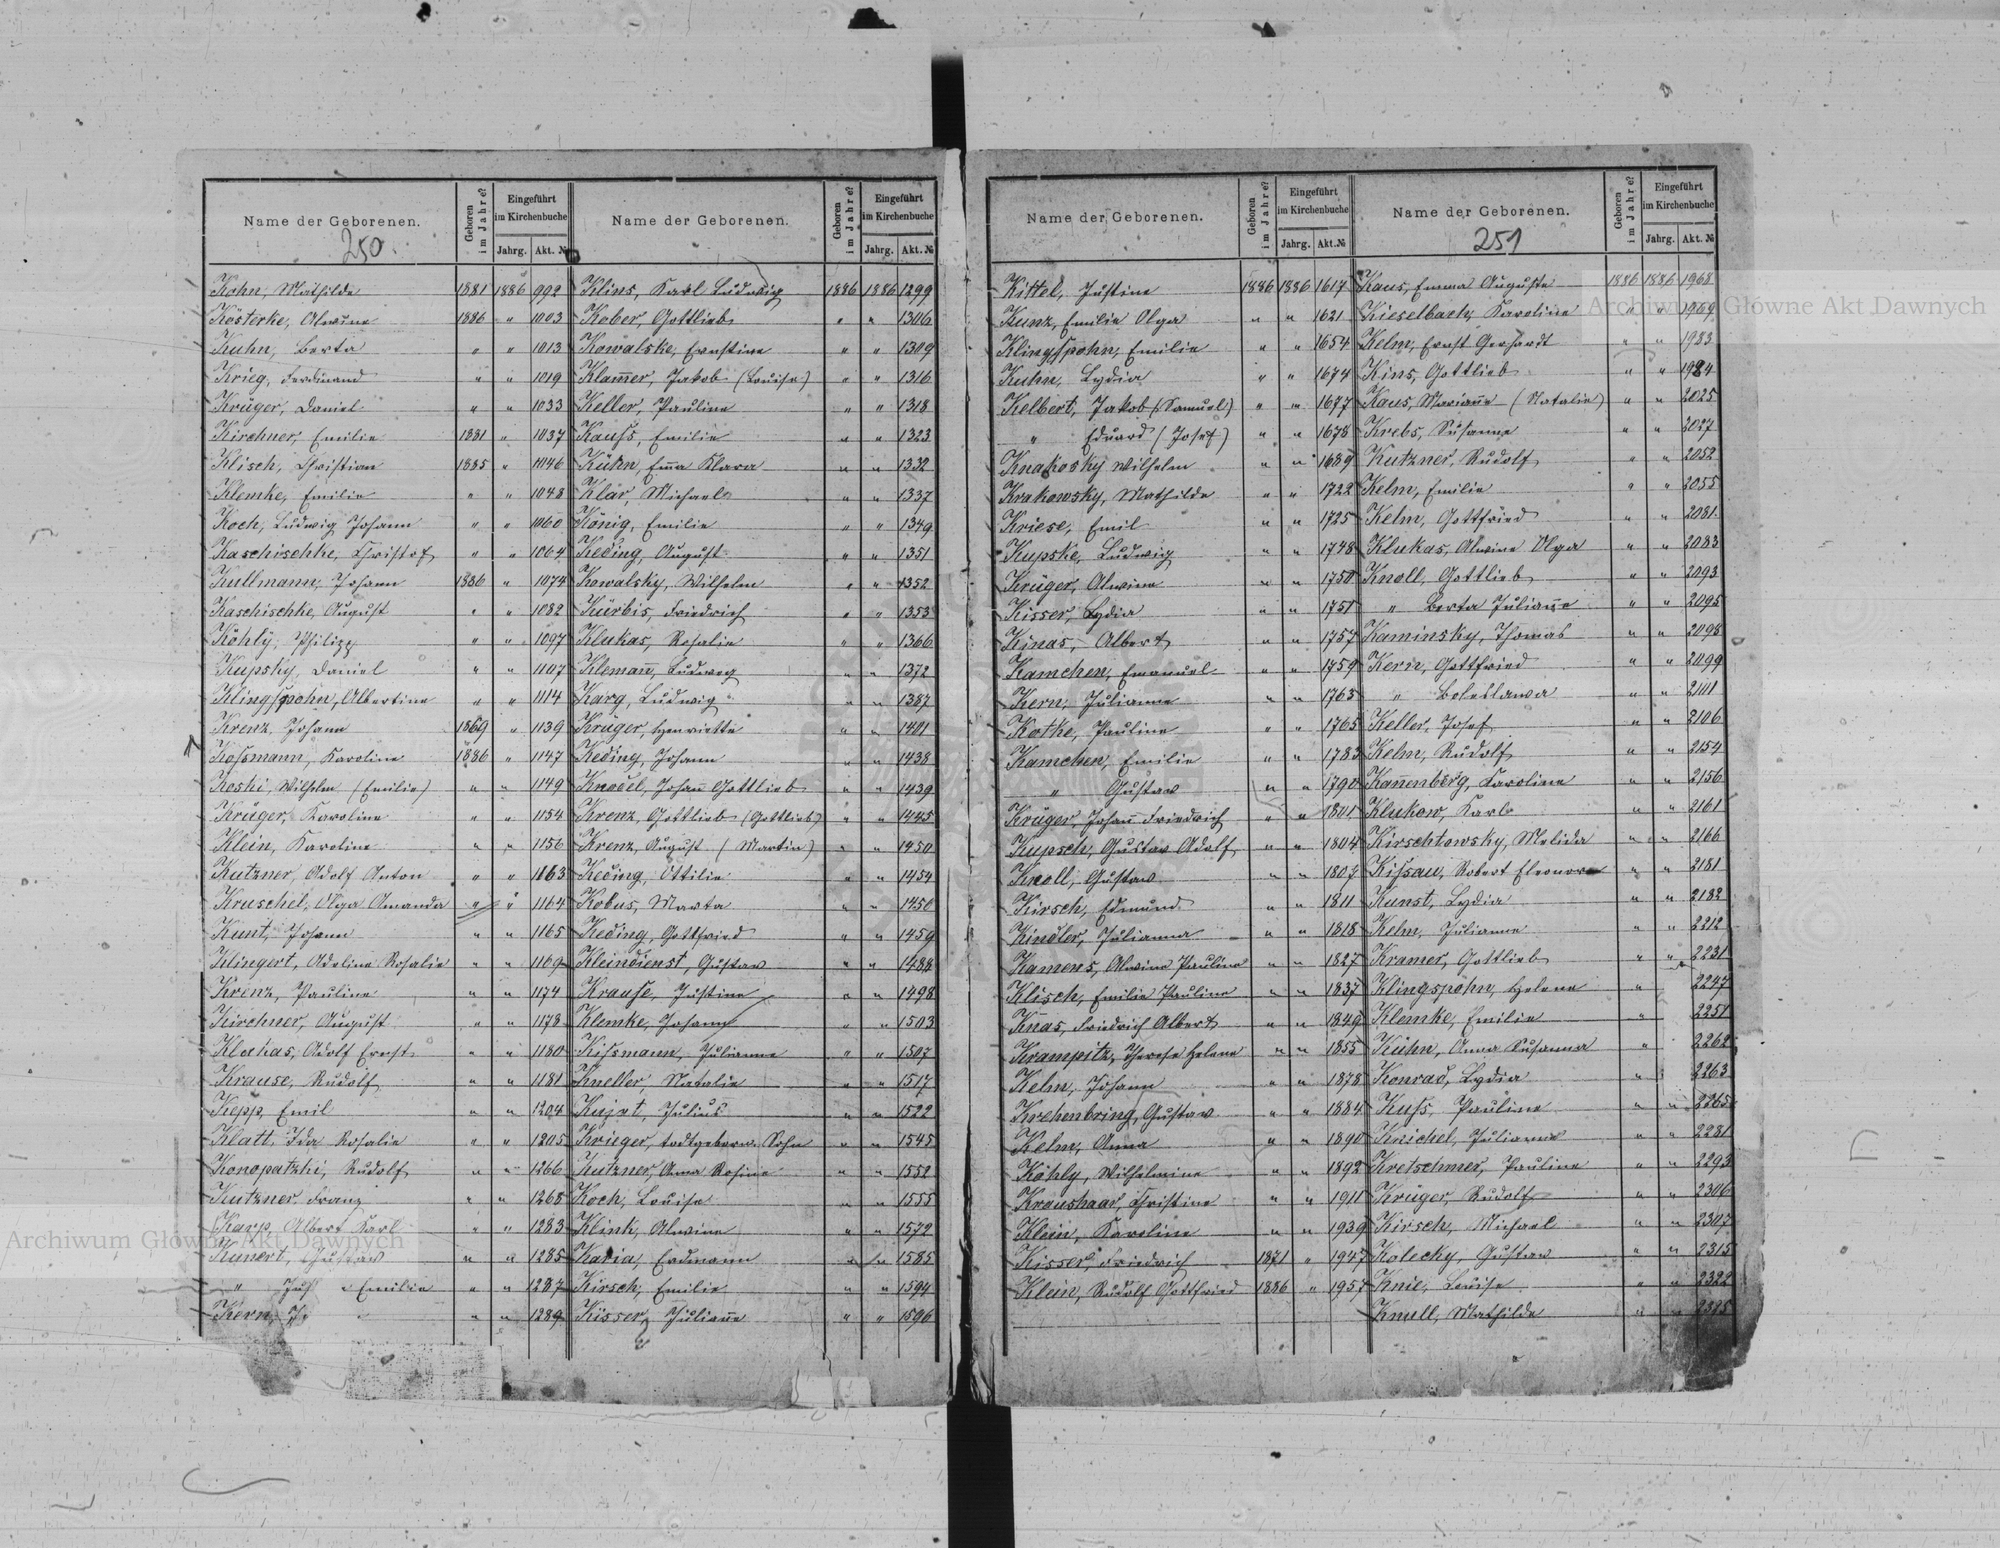 Name der Geborenen.
Geboren im Jahre?
Eingeführt im Kirchenbuche
Jahrg. Akt. №
Name der Geborenen.
Geboren im Jahre?
Eingeführt im Kirchenbuche
Jahrg. Akt. №
250
Kohn, Mathilde 1881 1886 992
Kösterke, Alwine 1886 " 1003
Kuhn, Berta " " 1013
Krieg, Ferdinand " " 1019
Krüger, Daniel " " 1033
Kirchner, Emilie 1881 " 1037
Klisch, Christian 1885 " 1046
Klemke, Emilie " " 1048
Koch, Ludwig Johann " " 1060
Kaschischke, Christof " " 1064
Kullmann, Johann 1886 " 1074
Kaschischke, August " " 1082
Köhly, Philipp " " 1097
Kupsky, Daniel " " 1107
Klingspohn, Albertine " " 1114
Krenz, Johann 1869 " 1139
Kossmann, Karoline 1886 " 1147
Koski, Wilhelm (Emilie) " " 1149
Krüger, Karoline " " 1154
Klein, Karoline " " 1156
Kutzner, Adolf Anton " " 1163
Kruschel, Olga Amanda " " 1164
Kunt, Johann " " 1165
Klingert, Adeline Rosalie " " 1169
Krenz, Pauline " " 1174
Kirchner, August " " 1178
Adolf Ernst " " 1180
Krause, Rudolf " " 1181
Kepp, Emil " " 1204
Klatt, Ida Rosalie " " 1205
Konopatzki, Rudolf " " 1266
Kutzner, Franz " " 1268
Karp, Albert Karl " " 1283
Kunert, Gustav " " 1285
" Emilie " " 1287
Kern, " " 1289
Klins, Karl Ludwig 1886 1886 1299
Kober, Gottlieb " " 1306
Kowalske, Ernstine " " 1309
Klam̄er, Jakob (Louise) " " 1316
Keller, Pauline " " 1318
Kauss, Emilie " " 1323
Kühn, Em̄a Klara " " 1332
Klar, Michael " " 1337
König, Emilie " " 1349
Keding, August " " 1351
Kowalsky, Wilhelm " " 1352
Kürbis, Friedrich " " 1353
Klukas, Rosalie " " 1366
Kleman̄, Ludwig " " 1372
Karg, Ludwig " " 1387
Krüger, Henriette " " 1401
Keding, Johann " " 1438
Knodel, Johan̄ Gottlieb " " 1439
Krenz, Gottlieb (Gottlieb) " " 1445
Krenz, August (Martin) " " 1450
Keding, Ottilie " " 1454
Kobus, Marta " " 1450
Keding, Gottfried " " 1459
Kleindienst, Gustav " " 1488
Krause, Justine " " 1498
Klemke, Johann " " 1503
Kissmann, Julianne " " 1507
Kneller, Natalie " " 1517
Kujat, Julius " " 1522
Krieger, todtgeborn. Sohn " " 1545
Kutzner, Anna Rosine " " 1552
Koch, Louise " " 1555
Klink, Alwine " " 1572
Katia, Erdmann " " 1585
Kirsch, Emilie " " 1594
Kisser, Julian̄e " " 1596
Name der Geborenen.
Geboren im Jahre?
Eingeführt im Kirchenbuche
Jahrg. Akt. №
Name der Geborenen.
Geboren im Jahre?
Eingeführt im Kirchenbuche
Jahrg. Akt. №
251
Kittel, Justine 1886 1886 1617
Kunz, Emilie Olga " " 1621
Klingspohn, Emilie " " 1654
Kuhn, Lydia " " 1674
Kelbert, Jakob (Samuel) " " 1677
" Eduard (Josef) " " 1678
Knakosky Wilhelm " " 1689
Krakowsky, Mathilde " " 1722
Kriese, Emil " " 1725
Kupske, Ludwig " " 1748
Krüger, Alwine " " 1750
Kisser, Lydia " " 1751
Kinas, Albert " " 1757
Kamchen, Emanuel " " 1759
Kern, Julianne " " 1763
Kotke, Pauline " " 1765
Kamchen, Emilie " " 1783
" Gustav " " 1790
Krüger, Johan̄ Friedrich " " 1801
Kupsch, Gustav Adolf " " 1804
Knoll, Gustav " " 1807
Kirsch, Edmund " " 1811
Kindler, Julianna " " 1818
Kamens, Alwine Pauline " " 1827
Klisch, Emilie Pauline " " 1837
Knas, Friedrich Albert " " 1849
Krampitz, Therese Helene " " 1855
Kelm, Johann " " 1878
Krehenbring, Gustav " " 1884
Kelm, Anna " " 1890
Köhly, Wilhelmine " " 1892
Kraushaar, Christine " " 1911
Klein, Karoline " " 1939
Kisser, Friedrich 1871 " 1947
Klein, Rudolf Gottfried 1886 " 1957
Kaus, Emma Auguste 1886 1886 1968
Kieselbach, Karoline " " 1969
Kelm, Ernst Gerhardt " " 1983
Kins, Gottlieb " " 1984
Kaus, Marian̄e (Natalie) " " 2025
Krebs, Susanne " " 2027
Kutzner, Rudolf " " 2052
Kelm, Emilie " " 2055
Kelm, Gottfried " " 2081
Klukas, Alwine Olga " " 2083
Knoll, Gottlieb " " 2093
" Berta Julian̄e " " 2095
Kaminsky, Thomas " " 2098
Kern, Gottfried " " 2099
" Boleslawa " " 2101
Keller, Josef " " 2106
Kelm, Rudolf " " 2154
Kan̄enberg, Karoline " " 2156
Klukow, Karl " " 2161
Kirschtowsky, Melida " " 2166
Kissau, Robert Eleonore " " 2181
Kunst, Lydia " " 2182
Kelm, Julianne " " 2212
Kramer, Gottlieb " " 2231
Klingspohn, Helene " 2247
Klemke, Emilie " 2251
Kühn, Anna Susanna " 2262
Konrad, Lydia " 2263
Kuss, Pauline " " 2265
Knichel, Julianne " " 2281
Kretschmer, Pauline " " 2293
Krüger, Rudolf " " 2306
Kirsch, Michael " " 2307
Kolecky, Gustav " " 2315
Knie, Louise " " 2322
Knull, Mathilde " " 2325
Archiwum Główne Akt Dawnych
Archiwum Główne Akt Dawnych